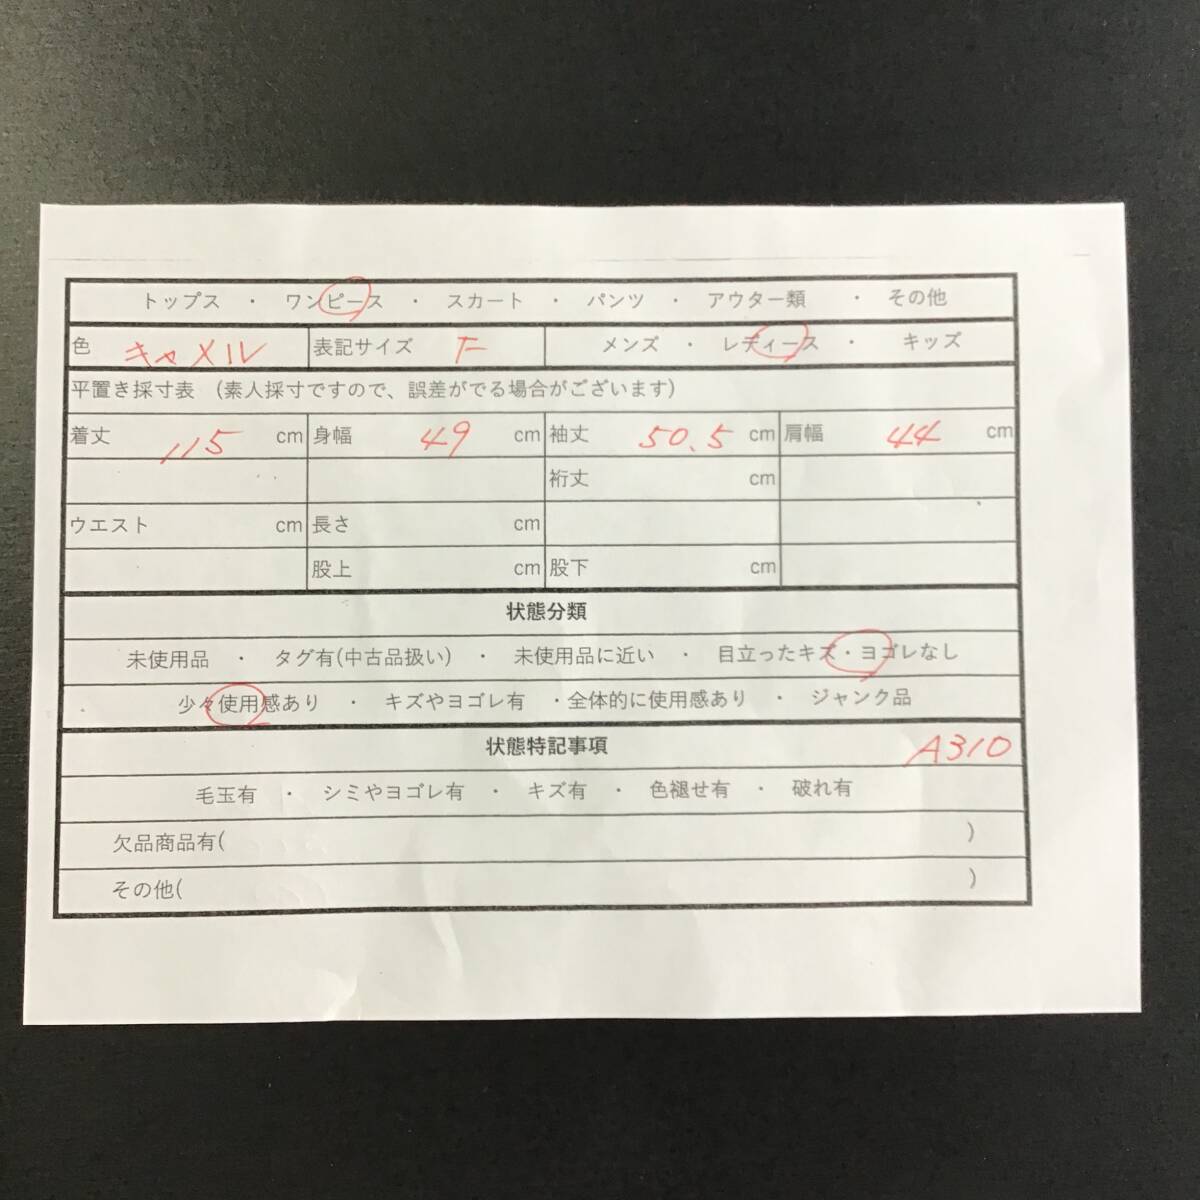 トップス ・ ワンピース ・ スカート ・ パンツ ・ アウター類 ・ その他
色 キャメル 表記サイズ F メンズ ・ レディース ・ キッズ
平置き採寸表 (素人採寸ですので、誤差がでる場合がございます)
着丈 115 cm 身幅 49 cm 袖丈 50.5 cm 肩幅 44 cm
裄丈 cm
ウエスト cm 長さ cm
股上 cm 股下 cm
状態分類
未使用品 ・ タグ有(中古品扱い) ・ 未使用品に近い ・ 目立ったキズ・ヨゴレなし
少々使用感あり ・ キズやヨゴレ有 ・全体的に使用感あり ・ ジャンク品
状態特記事項 A310
毛玉有 ・ シミやヨゴレ有 ・ キズ有 ・ 色褪せ有 ・ 破れ有
欠品商品有( )
その他( )